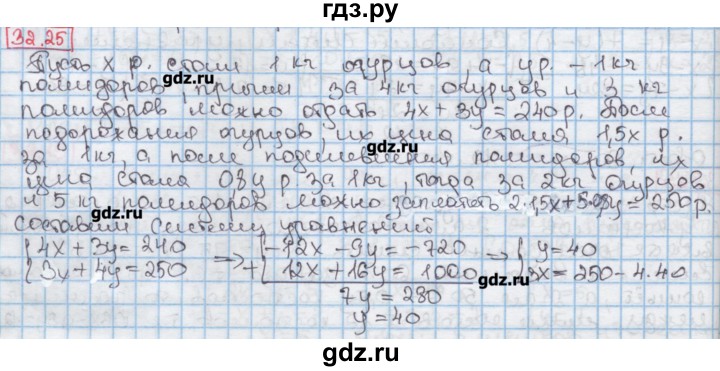 гдз.ру
32.25
Пусть х р. стоил 1 кг огурцов, а у р. – 1 кг
помидоров, причем за 4 кг огурцов и 3 кг
помидоров можно отдать 4x + 3y = 240 р. После
подорожания огурцов, их цена стала 1,5x р.
за 1 кг, а после подешевления помидоров, их
цена стала 0,8y р за 1 кг, тогда за 2 кг огурцов
и 5 кг помидоров можно заплатить 2·1,5x + 5·0,8y = 250 р.
Составим систему уравнений
{4x + 3y = 240 => +{-12x - 9y = -720 => {y = 40
{3x + 4y = 250 {12x + 16y = 1000 {3x = 250 - 4·40
7y = 280
y = 40
gdz.ru
gdz.ru
gdz.ru
gdz.ru
gdz.ru
gdz.ru
gdz.ru